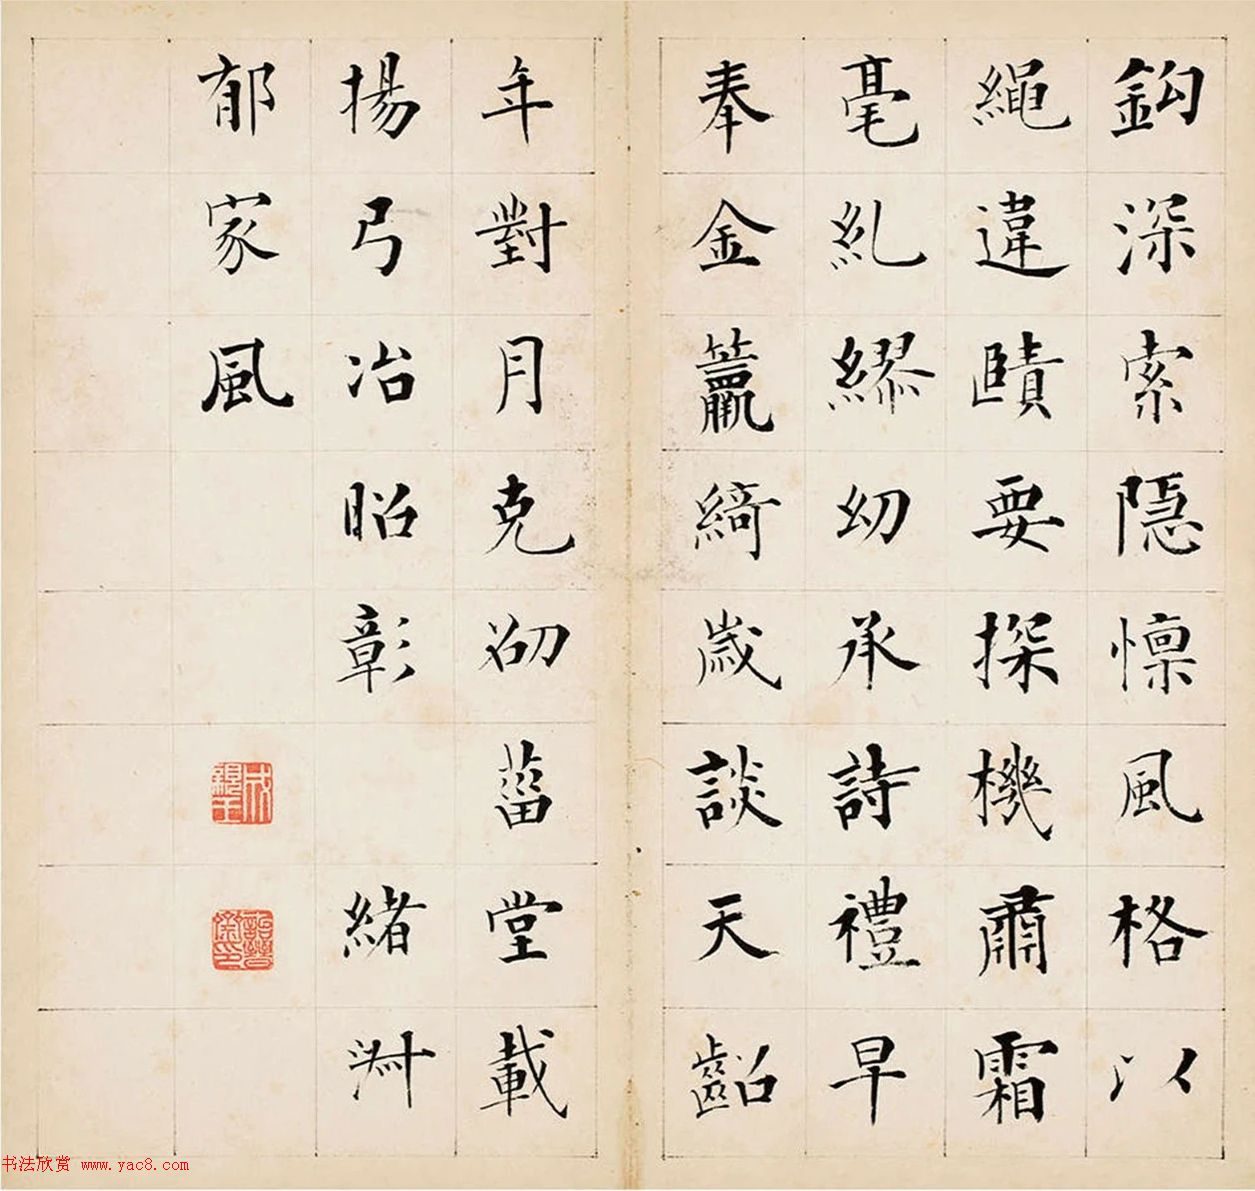 鈎深索隱懍風格以
繩違賾要探機肅霜
毫糺繆幼承詩禮早
奉金籯綺歲談天齠
年對月克劭菑堂載
揚弓冶昭彰 緒
郁家風
书法欣赏 www.yac8.com